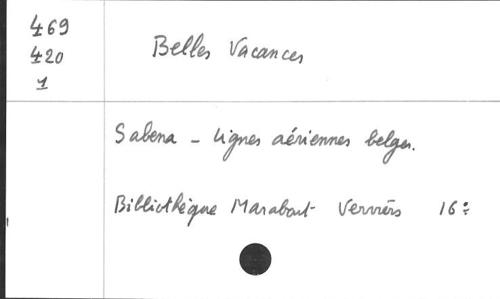 469
420
1
Belles Vacances
Sabena - Lignes aériennes belges.
Bibliothèque Marabout Verviers 16°